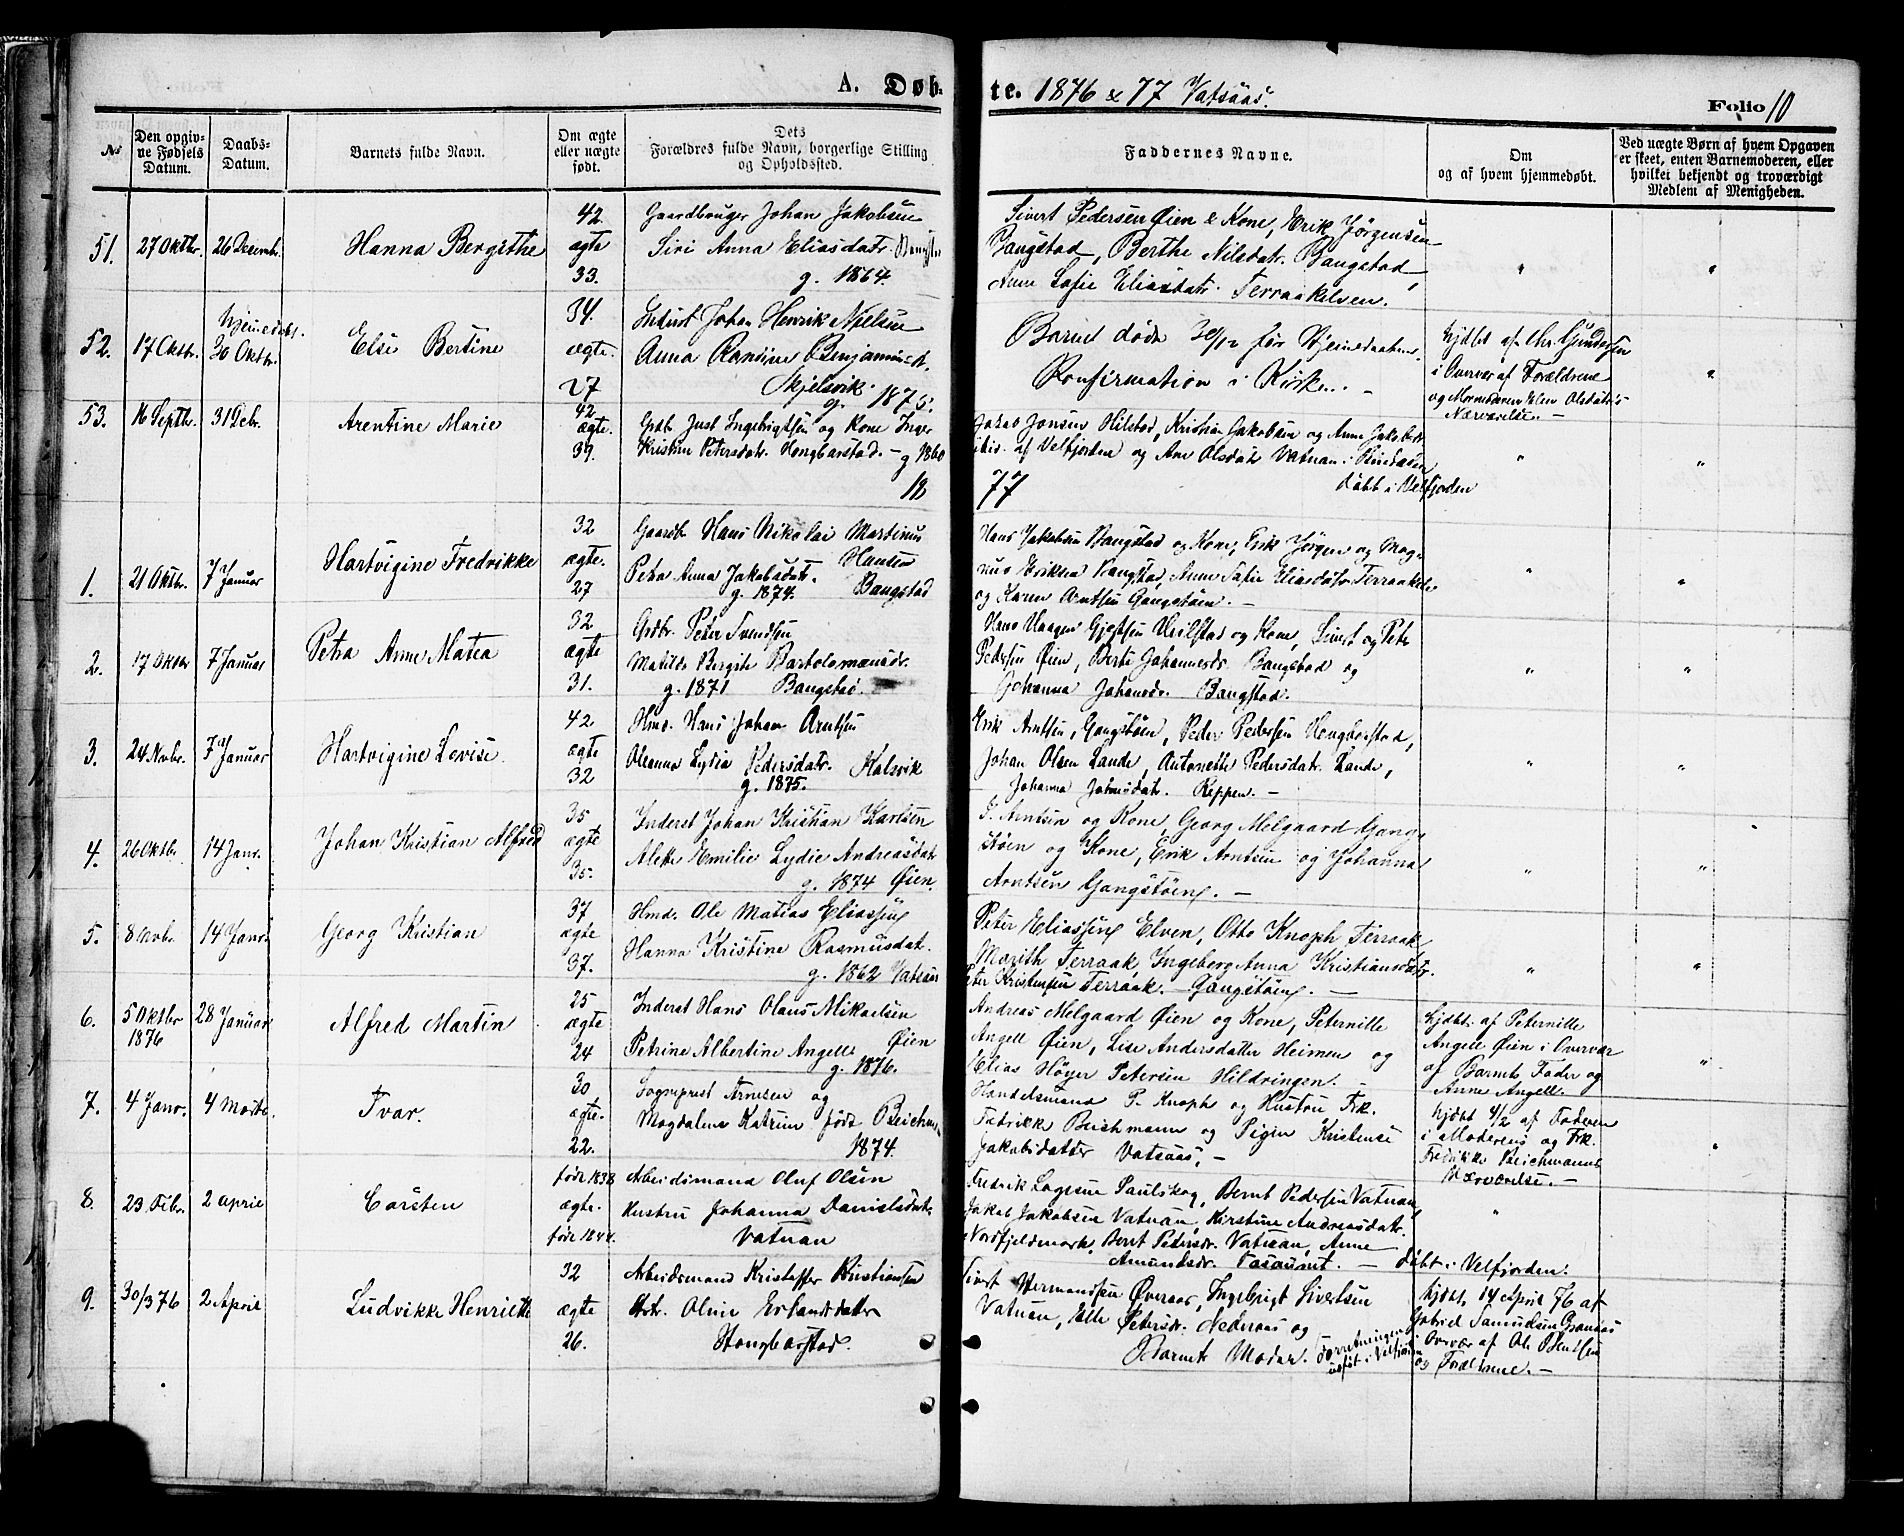 A. Døb-
te. 1876 & 77 Vatsaas.
Folio 10
No
Den opgiv-
ne Fødsels
Datum.
Daabs-
Datum.
Barnets fulde Navn.
Om ægte
eller uægte
født.
Dets
Forældres fulde Navn, borgerlige Stilling
og Opholdssted.
Faddernes Navne.
Om
og af hvem hjemmedøbt.
Ved uægte Børn af hvem Opgaven
er skeet, enten Barnemoderen, eller
hvilket bekjendt og troværdigt
Medlem af Menigheden.
51. 27 Oktbr. 26 Decembr. Hanna Bergithe
42.
ægte
33.
Gaardbruger Johan Jakobsen
Siri Anna Eliasdatr.
g. 1864.
Sivert Pedersen Øien & Kone, Erik Jørgensen
Bangstad, Berthe Nilsdatr. Bangstad,
Anne Sofie Eliasdatr. Terraakelven.
52. 17 Oktbr. hjemmedøbt. 30 Oktbr. Else Bertine
34.
ægte.
27
Inderst Johan Henrik Nielsen
Anna Randine Benjaminsd.
Skjelsvik.
g. 1875.
Barnet døde 30/12 før Hjemmedaabens
Konfirmation i Kirken. -
hjdbt af Chr. Gundersen
i Overvær af Forældrene
og Mormoderen Elen Olsdatr's
Nærværelse. -
53. 16 Septbr. 31 Debr. Arentine Marie
42
ægte.
39.
Grdb. Just Ingebrigtsen og Kone Inger
Kristine Petersdatr. Hongbarstad. - g 1860
Jakob Jonsen Hilstad, Kristian Jakobsen og Anne Jakobsdr
af Velfjorden og Ane Olsdatr Vatnan i
Døbt i Velfjorden
18
77
1. 21 Oktbr. 7 Januar Hartvigine Fredrikke
32
ægte.
27
Gaardb. Hans Nikolai Martinus
Hansen
Petra Anna Jakobsdatr.
g. 1874. Bangstad
Hans Jakobsen Bangstad og Kone, Erik Jørgen og Mag-
nus Eriksen Bangstad, Anne Sofie Eliasdatr Terraakelv.
og Karen Arntsen Gangstøen. -
2. 17 Oktbr 7 Januar Petra Anne Matea
32
ægte
31.
Grdbr. Peter Svendsen
Matilde Bergite Bartolomæusdr.
g. 1871 Bangstad.
Hans Haagen Gjertsen Heilstad og Kone, Sivert og Peter
Pedersen Øien, Berte Johannesdr. Bangstad og
Johanna Johansdr. Bangstad.
3. 24 Novbr. 7 Januar Hartvigine Lovise
42
ægte
32
Hmd. Hans Johan Arntsen
Oleanna Lydia Pedersdatr. Kalsvik
g. 1875.
Erik Arntsen, Gangstøen, Peder Pedersen Hongbarstad,
Johan Olsen Lande, Antonette Pedersdatr. Lande,
Johanna Johnsdatr. Reppen. -
4. 26 Oktbr 14 Janr. Johan Kristian Alfred
35
ægte
35.
Inderst Johan Kristian Karlsen
Alette Emilie Lydie Andreasdatr
g. 1874 Øien.
J. Arntsen og Kone, Georg Melgaard Gang-
støen og Kone, Erik Arntsen og Johanna
Arntsen Gangstøen. -
5. 8 Novbr. 14 Janr. Georg Kristian
37
ægte
37.
Hmd. Ole Matias Eliassen
Hanna Kristine Rasmusdat.
g. 1862 Vatsaas
Peter Eliassen Elven, Otto Knoph Terraak
Marith Terraak, Ingeborg Anna Kristiansdatr.
Peter Kristensen Terraak. - Gangstøen. -
6. 5 Oktbr 1876 28 Januar Alfred Martin
25
ægte
24
Inderst Hans Olaus Mikaelsen
Øien
Petrine Albertine Angell
g. 1876.
Andreas Melgaard Øien og Kone, Peternille
Angell Øien, Lise Andersdatter Heimen og
Elias Høyer Petersen Hildringen. -
hjdbt. af Peternille
Angell Øien i Overvær
af Barnets Fader og
Anne Angell.
7. 4 Janr. 4 Marts Ivar.
30
ægte.
22.
Sogneprest Arnesen og
Magdalena Katrine født Beichm.
1874.
Handelsmand P. Knoph og Hustru Frk.
Fredrikke Beichmann og Pigen Kristense
Jakobsdatter Vatsaas, -
hjdbt 4/2 af Faderen
i Moderens og Frk.
Fredrikke Beichmanns
Nærværelse. -
8. 23 Febr. 2 April Carsten
født 1838
ægte.
født 1844.
Arbeidsmand Oluf Olsen
Hustru Johanna Danielsdatr.
Vatnan
Fredrik Paulskog, Bernt Pedersen Vatnan,
Jakob Jakobsen Vatnan, Kirstine Andreasdatr.
Nordfjeldmark, Berit Pedersdr. Vatnan, Anne
Amundsdr. -
Døbt i Velfjorden.
9. 30/3 76 2 April Ludvikke Henriette
32
ægte
26.
Arbeidsmand Kristoffer Kristiansen
Hstr. Oline Erlandsdatter
Hongbarstad.
Sivert Hermandsen Øveraas, Ingebrigt Sivertsen
Vatnan, Elle Petersdr. Nederaas og
Barnets Moder.
Forretningen
udført i Velfjorden
hjdbt. 14 April 76 af
Gabriel Samuelsen Granaas
i Overvær af Ole Bentsen
og Forældrene. -